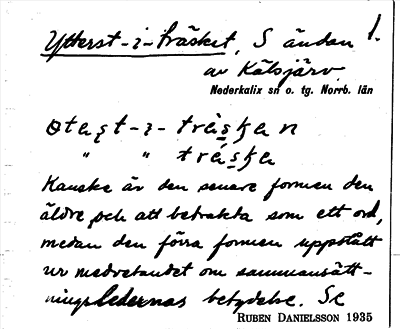 Ytterst-i-träsket, S ändan 1.
av Kälsjärv.
Nederkalix sn o. tg. Norrb. län
-i- träskan
" " träska
Kanske är den senare formen den
äldre och att betrakta som ett ord,
medan den förra formen uppstått
ur medvetandet om sammansätt-
ningsledernas betydelse. Se
RUBEN DANIELSSON 1935